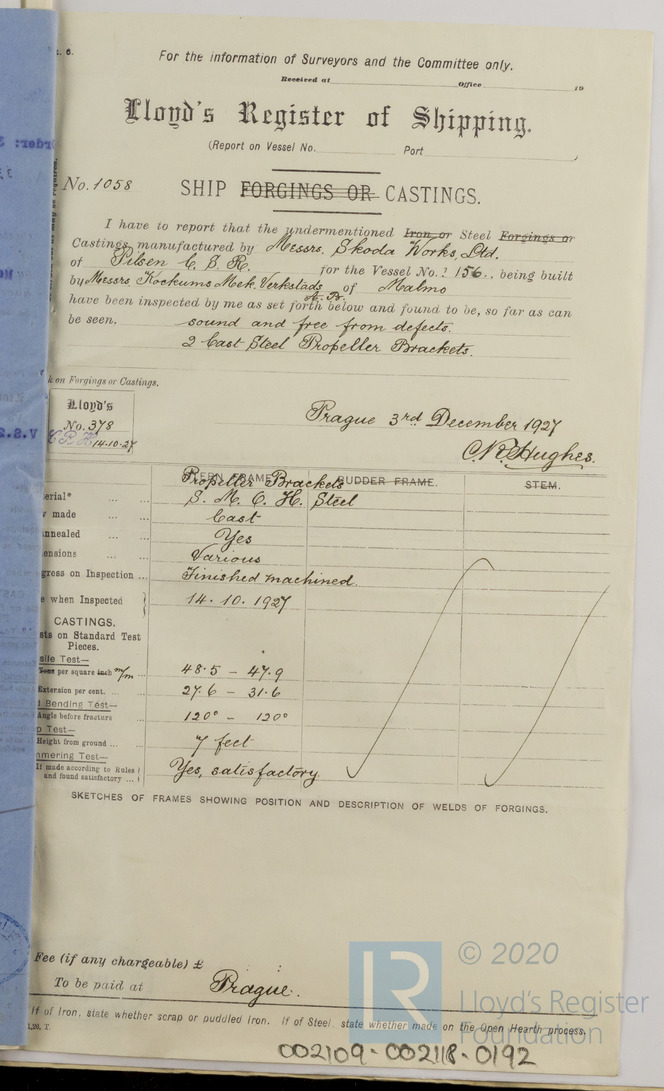 For the information of Surveyors and the Committee only.
Received at Office 19
Lloyd's Register of Shipping.
(Report on Vessel No. Port
No. 1058
SHIP FORGINGS OR CASTINGS.
I have to report that the undermentioned Iron or Steel Forgings or
Castings, manufactured by Messrs. Skoda Works, Ltd.
of Pilsen C. S. R. for the Vessel No. 156, being built
by Messrs Kockums Mek. Verkstads A. B. of Malmo
have been inspected by me as set forth below and found to be, so far as can
be seen. sound and free from defects.
2 Cast Steel Propeller Brackets.
k on Forgings or Castings.
Lloyd's
No. 378
14.10.27
V.S.2
Prague 3rd December 1927
C.R. Hughes.
STERN FRAME Propeller Brackets RUDDER FRAME. STEM.
erial* S. M. O. H. Steel
made Cast
nnealed Yes
ensions Various
gress on Inspection Finished machined.
e when Inspected 14. 10. 1927
CASTINGS.
sts on Standard Test
Pieces.
sile Test—
Tons per square inch m/m 48.5 – 47.9
Extension per cent. 27.6 – 31.6
d Bending Test—
Angle before fracture 120° – 120°
p Test—
Height from ground 7 feet
mmering Test—
If made according to Rules
and found satisfactory Yes, satisfactory
SKETCHES OF FRAMES SHOWING POSITION AND DESCRIPTION OF WELDS OF FORGINGS.
Fee (if any chargeable) £
To be paid at Prague.
If of Iron, state whether scrap or puddled Iron. If of Steel, state whether made on the Open Hearth process.
© 2020
Lloyd's Register
Foundation
002109-002118-0192